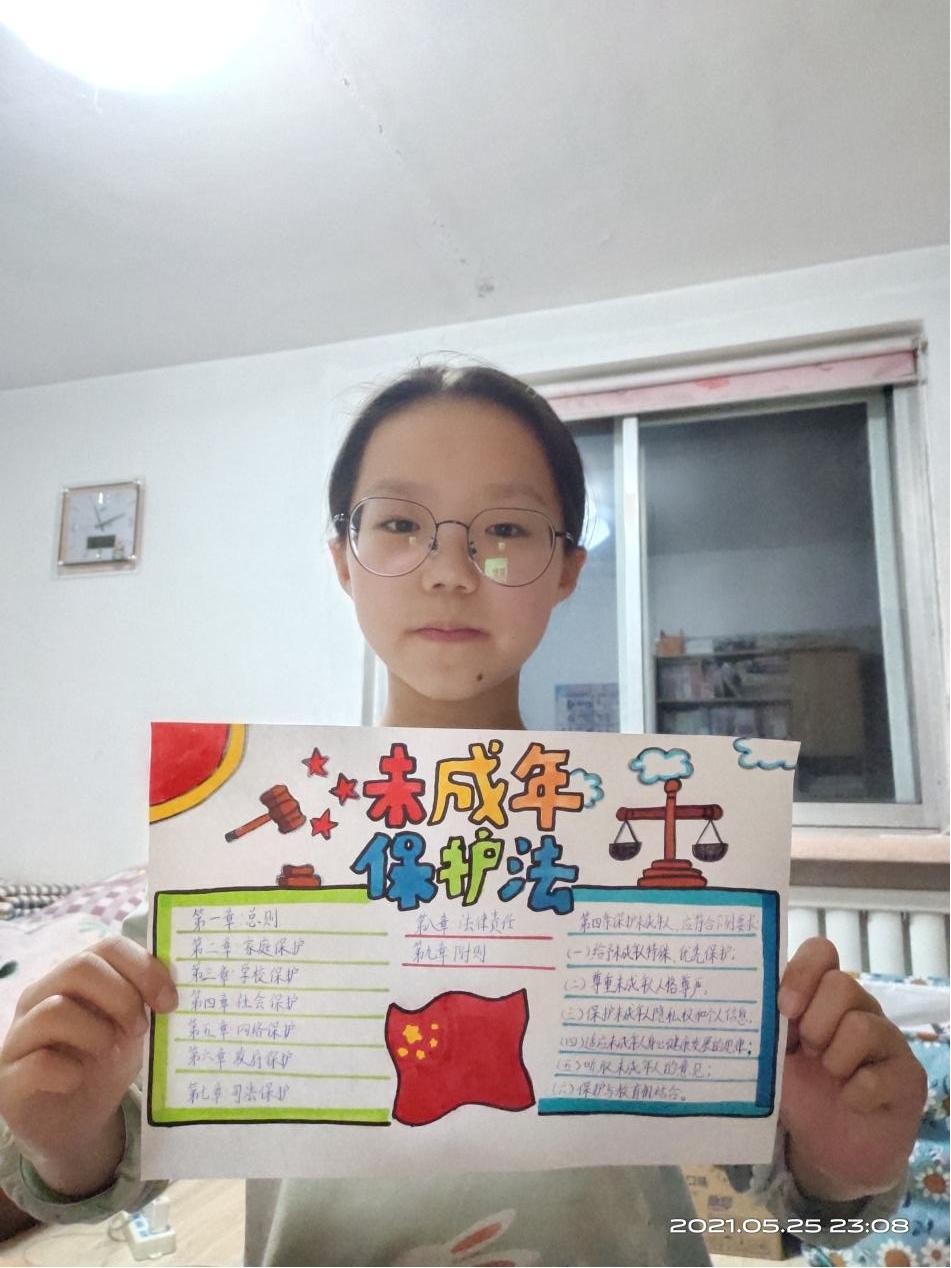 未成年
保护法
第一章 总则
第二章 家庭保护
第三章 学校保护
第四章 社会保护
第五章 网络保护
第六章 政府保护
第七章 司法保护
第八章 法律责任
第九章 附则
第四条保护未成年人，应符合下列要求：
(一)给予未成年人特殊、优先保护；
(二)尊重未成年人人格尊严；
(三)保护未成年人隐私权和个人信息；
(四)适应未成年人身心健康发展的规律；
(五)听取未成年人的意见；
(六)保护与教育相结合。
2021.05.25 23:08